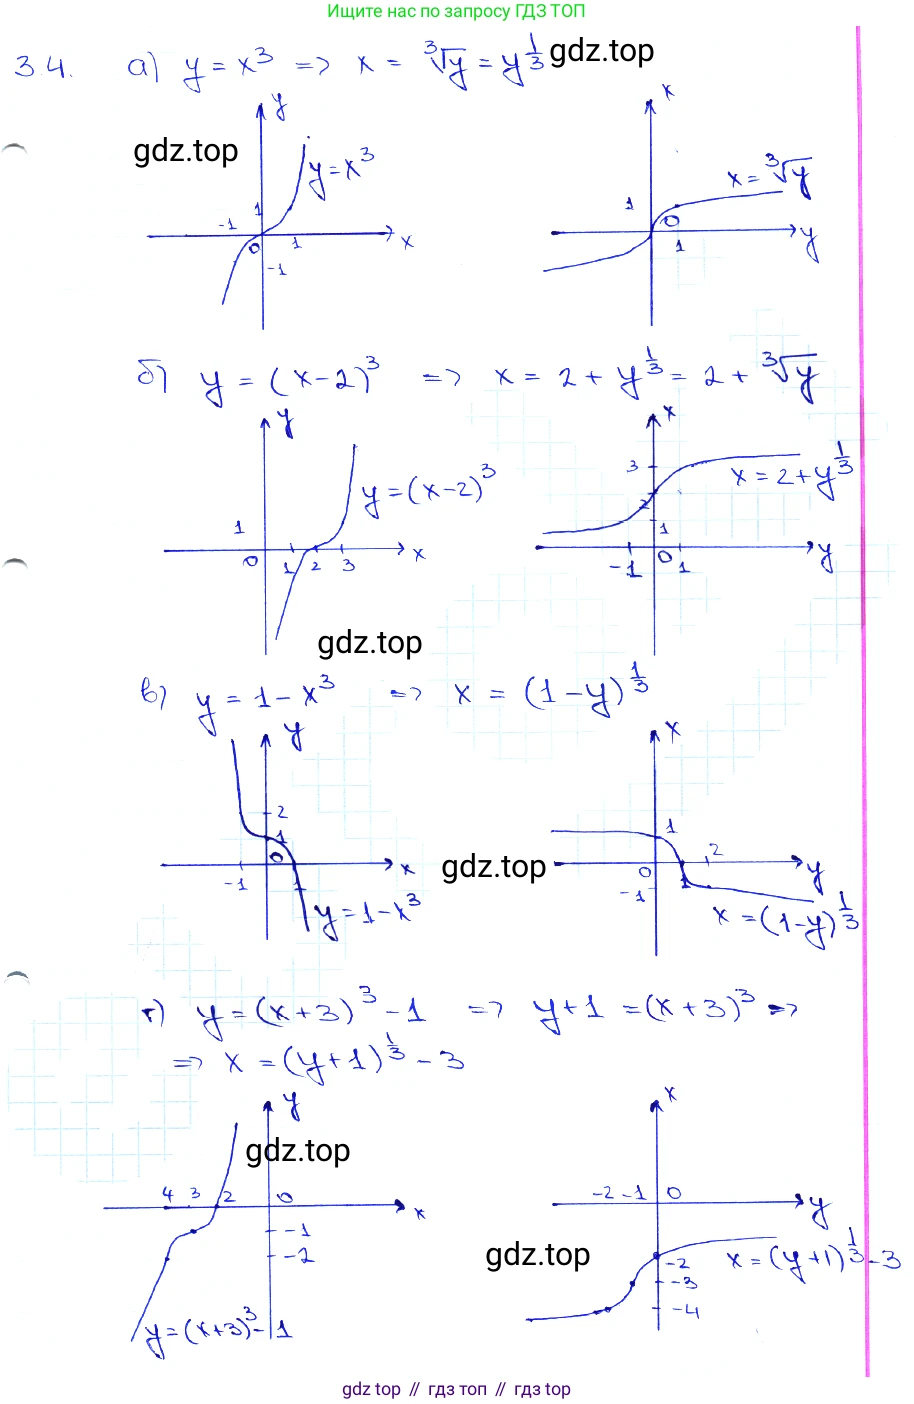 Ищите нас по запросу ГДЗ ТОП
34. а) y = x³ => x = ∛y = y^(1/3) gdz.top
y x
gdz.top y=x³ x=∛y
-1 1 0 1 -1 x
1 0 1 y
б) y = (x-2)³ => x = 2 + y^(1/3) = 2 + ∛y
y x
y=(x-2)³ 3 x=2+y^(1/3)
1 0 1 2 3 x
2 1 -1 0 1 y
gdz.top
в) y = 1 - x³ => x = (1-y)^(1/3)
y x
2 1 0 -1 x
gdz.top
1 0 -1 1 2 y
y=1-x³ x=(1-y)^(1/3)
г) y=(x+3)³-1 => y+1=(x+3)³ =>
=> x=(y+1)^(1/3)-3
y x
gdz.top
4 3 2 0 x -2 -1 0 y
-1 -2
gdz.top x=(y+1)^(1/3)-3
-2 -3 -4
y=(x+3)³-1
gdz top // гдз топ // gdz top